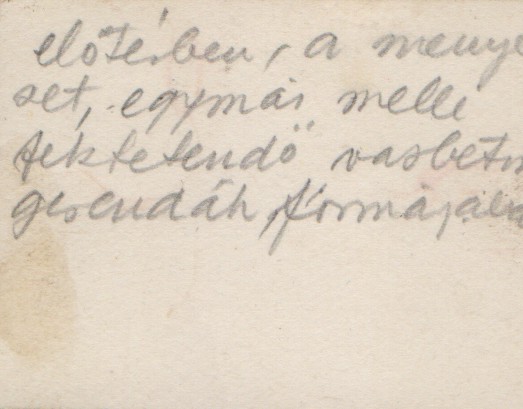 előtérben, a menye
zet, egymás mellé
fektetendő vasbeton
gerendák, formájába